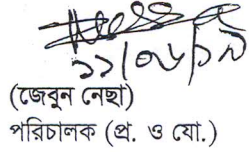 ১১/০৮/১৯
(জেবুন নেছা)
পরিচালক (প্র. ও যো.)